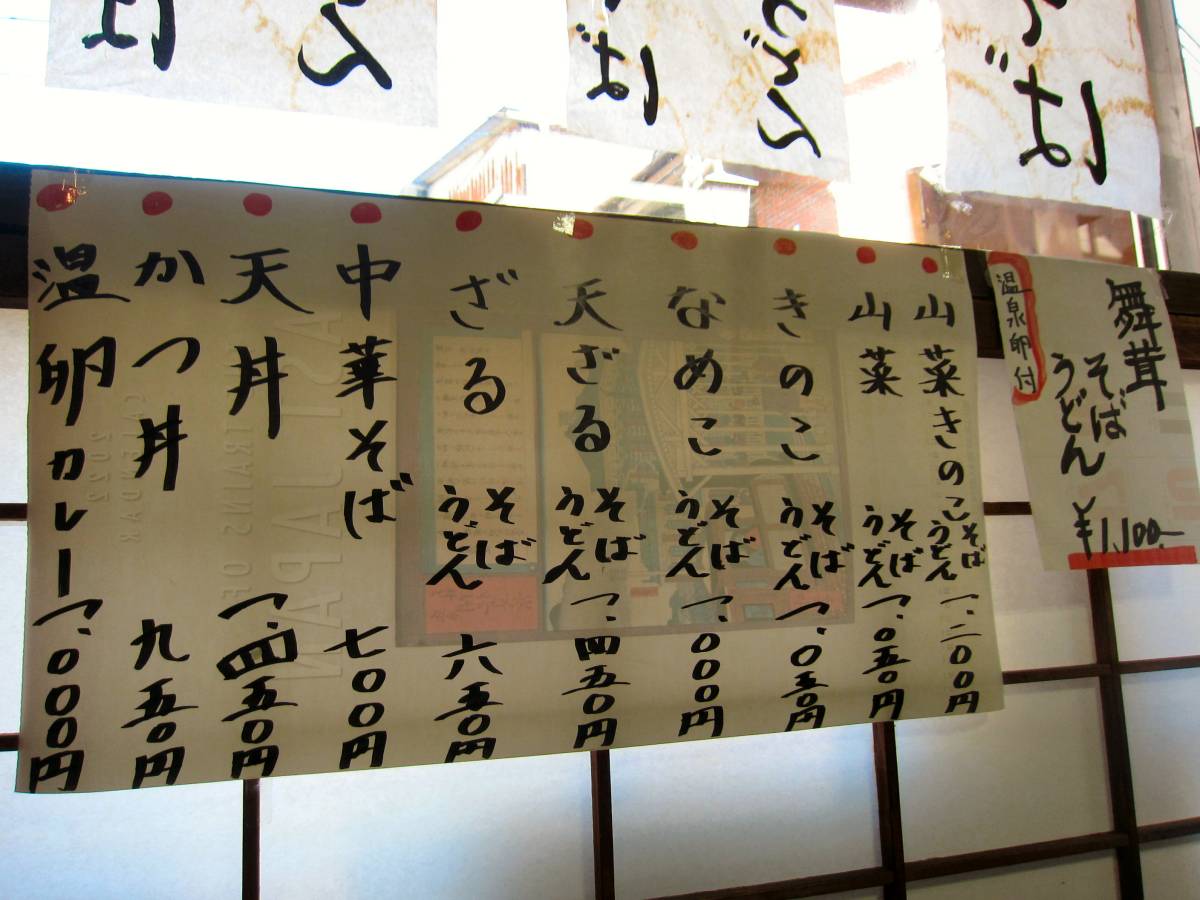 そば
うどん
そば
うどん
そば
舞茸
そば
うどん
¥1,100-
温泉卵付
山菜きのこ そば うどん 一、二〇〇円
山菜 そば うどん 一、〇五〇円
きのこ そば うどん 一、〇五〇円
なめこ そば うどん 一、〇〇〇円
天ざる そば うどん 一、四五〇円
ざる そば うどん 六五〇円
中華そば 七〇〇円
天丼 一、四五〇円
かつ丼 九五〇円
温卵カレー 一、〇〇〇円